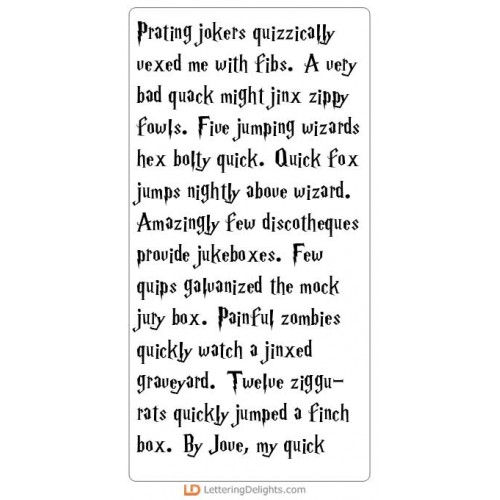 Prating jokers quizzically
vexed me with fibs. A very
bad quack might jinx zippy
fowls. Five jumping wizards
hex bolty quick. Quick fox
jumps nightly above wizard.
Amazingly few discotheques
provide jukeboxes. Few
quips galvanized the mock
jury box. Painful zombies
quickly watch a jinxed
graveyard. Twelve ziggu-
rats quickly jumped a finch
box. By Jove, my quick
LD LetteringDelights.com